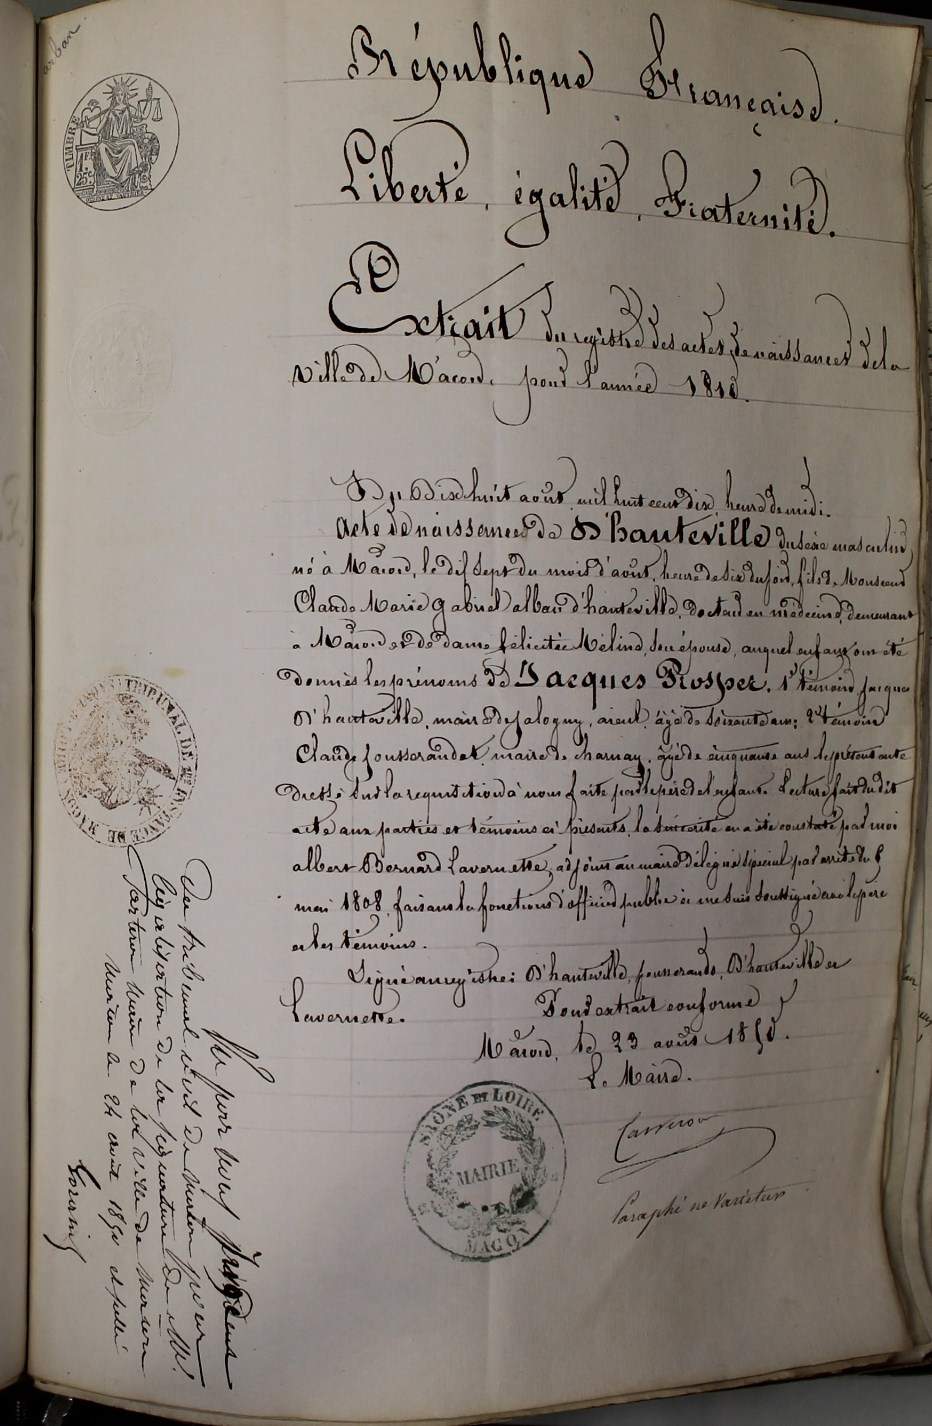 République Française.
Liberté, égalité, Fraternité.
Extrait du registre des actes de naissances de la
ville de Mâcon, pour l'année 1810.
Du Dix huit août mil huit cent dix, heure de midi.
Acte de naissance de D'hauteville du sexe masculin,
né à Mâcon, le dix sept du mois d'août, heure de six du soir, fils de Monsieur
Claude Marie Gabriel alban d'hauteville, docteur en médecine, demeurant
à Mâcon et de dame félicitée Mélin, son épouse, auquel enfant ont été
donnés les prénoms de Jacques Prosper. 1er témoin, Jacques
D'hauteville, maire de Salogny, aïeul, âgé de soixante ans; 2e témoin
Claude Jousserandot, maire de Charnay, âgé de cinquante ans le présent acte
dressé sur la requisition à nous faite par le père de l'enfant. Lecture fait du dit
acte aux parties et témoins ci présents, la sincérité en a été constaté par moi
albert Bernard Lavernette, adjoint au maire délégué spécial par arrêté du 6
mai 1808, faisant la fonctions d'officier public et me suis soussigné avec le père
et les témoins.
Signé au registre: D'hauteville, jousserando, D'hauteville et
Lavernette. Pour extrait conforme
Mâcon, le 23 août 1850.
Le Maire.
Paraphé ne varietur
TIMBRE
1F
25c
TRIBUNAL DE
MACON
SAÔNE ET LOIRE
MAIRIE
MACON
Vu par nous président
du tribunal civil de Macon pour
légalisation de la signature de Mr
maire de la ville de Macon
Macon le 24 août 1850